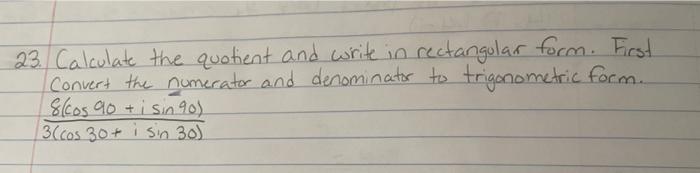 23. Calculate the quotient and write in rectangular form. First
Convert the numerator and denominator to trigonometric form.
8(cos 90 + i sin 90)
3(cos 30 + i sin 30)